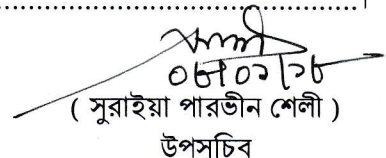 ০৮/০১/১৮
( সুরাইয়া পারভীন শেলী )
উপসচিব